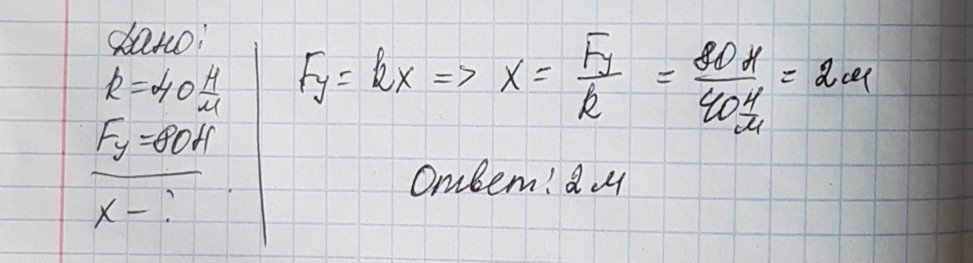 Дано:
k = 40 Н/м
Fу = 80 Н
x - ?
Fу = kx => x = Fу/k = 80 Н / 40 Н/м = 2 м
Ответ: 2 м